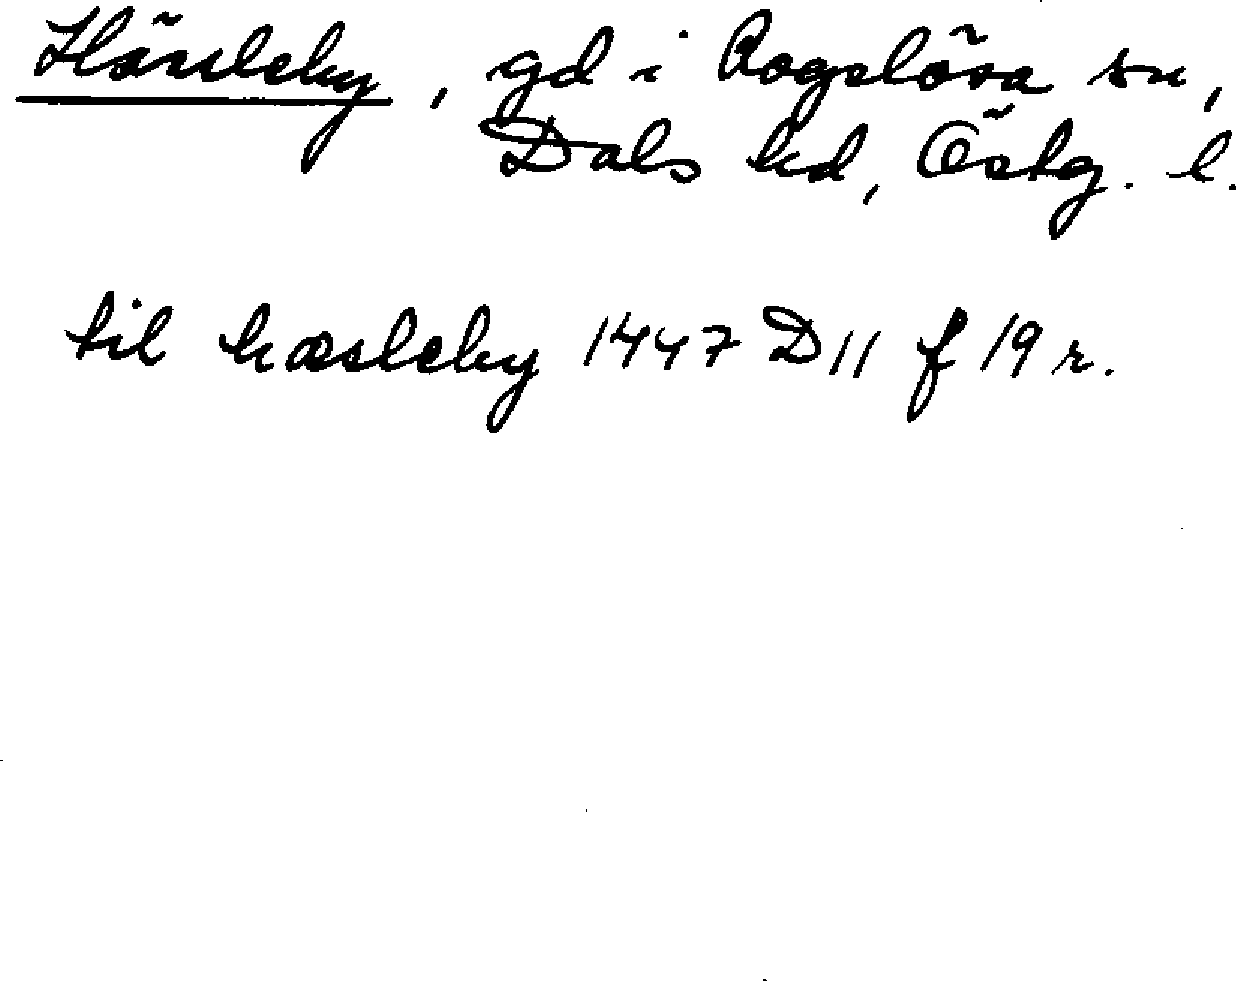 Hässleby, gd i Rogslösa sn,
Dals hd, Östg. l.
til hæsleby 1447 D11 f 19 r.